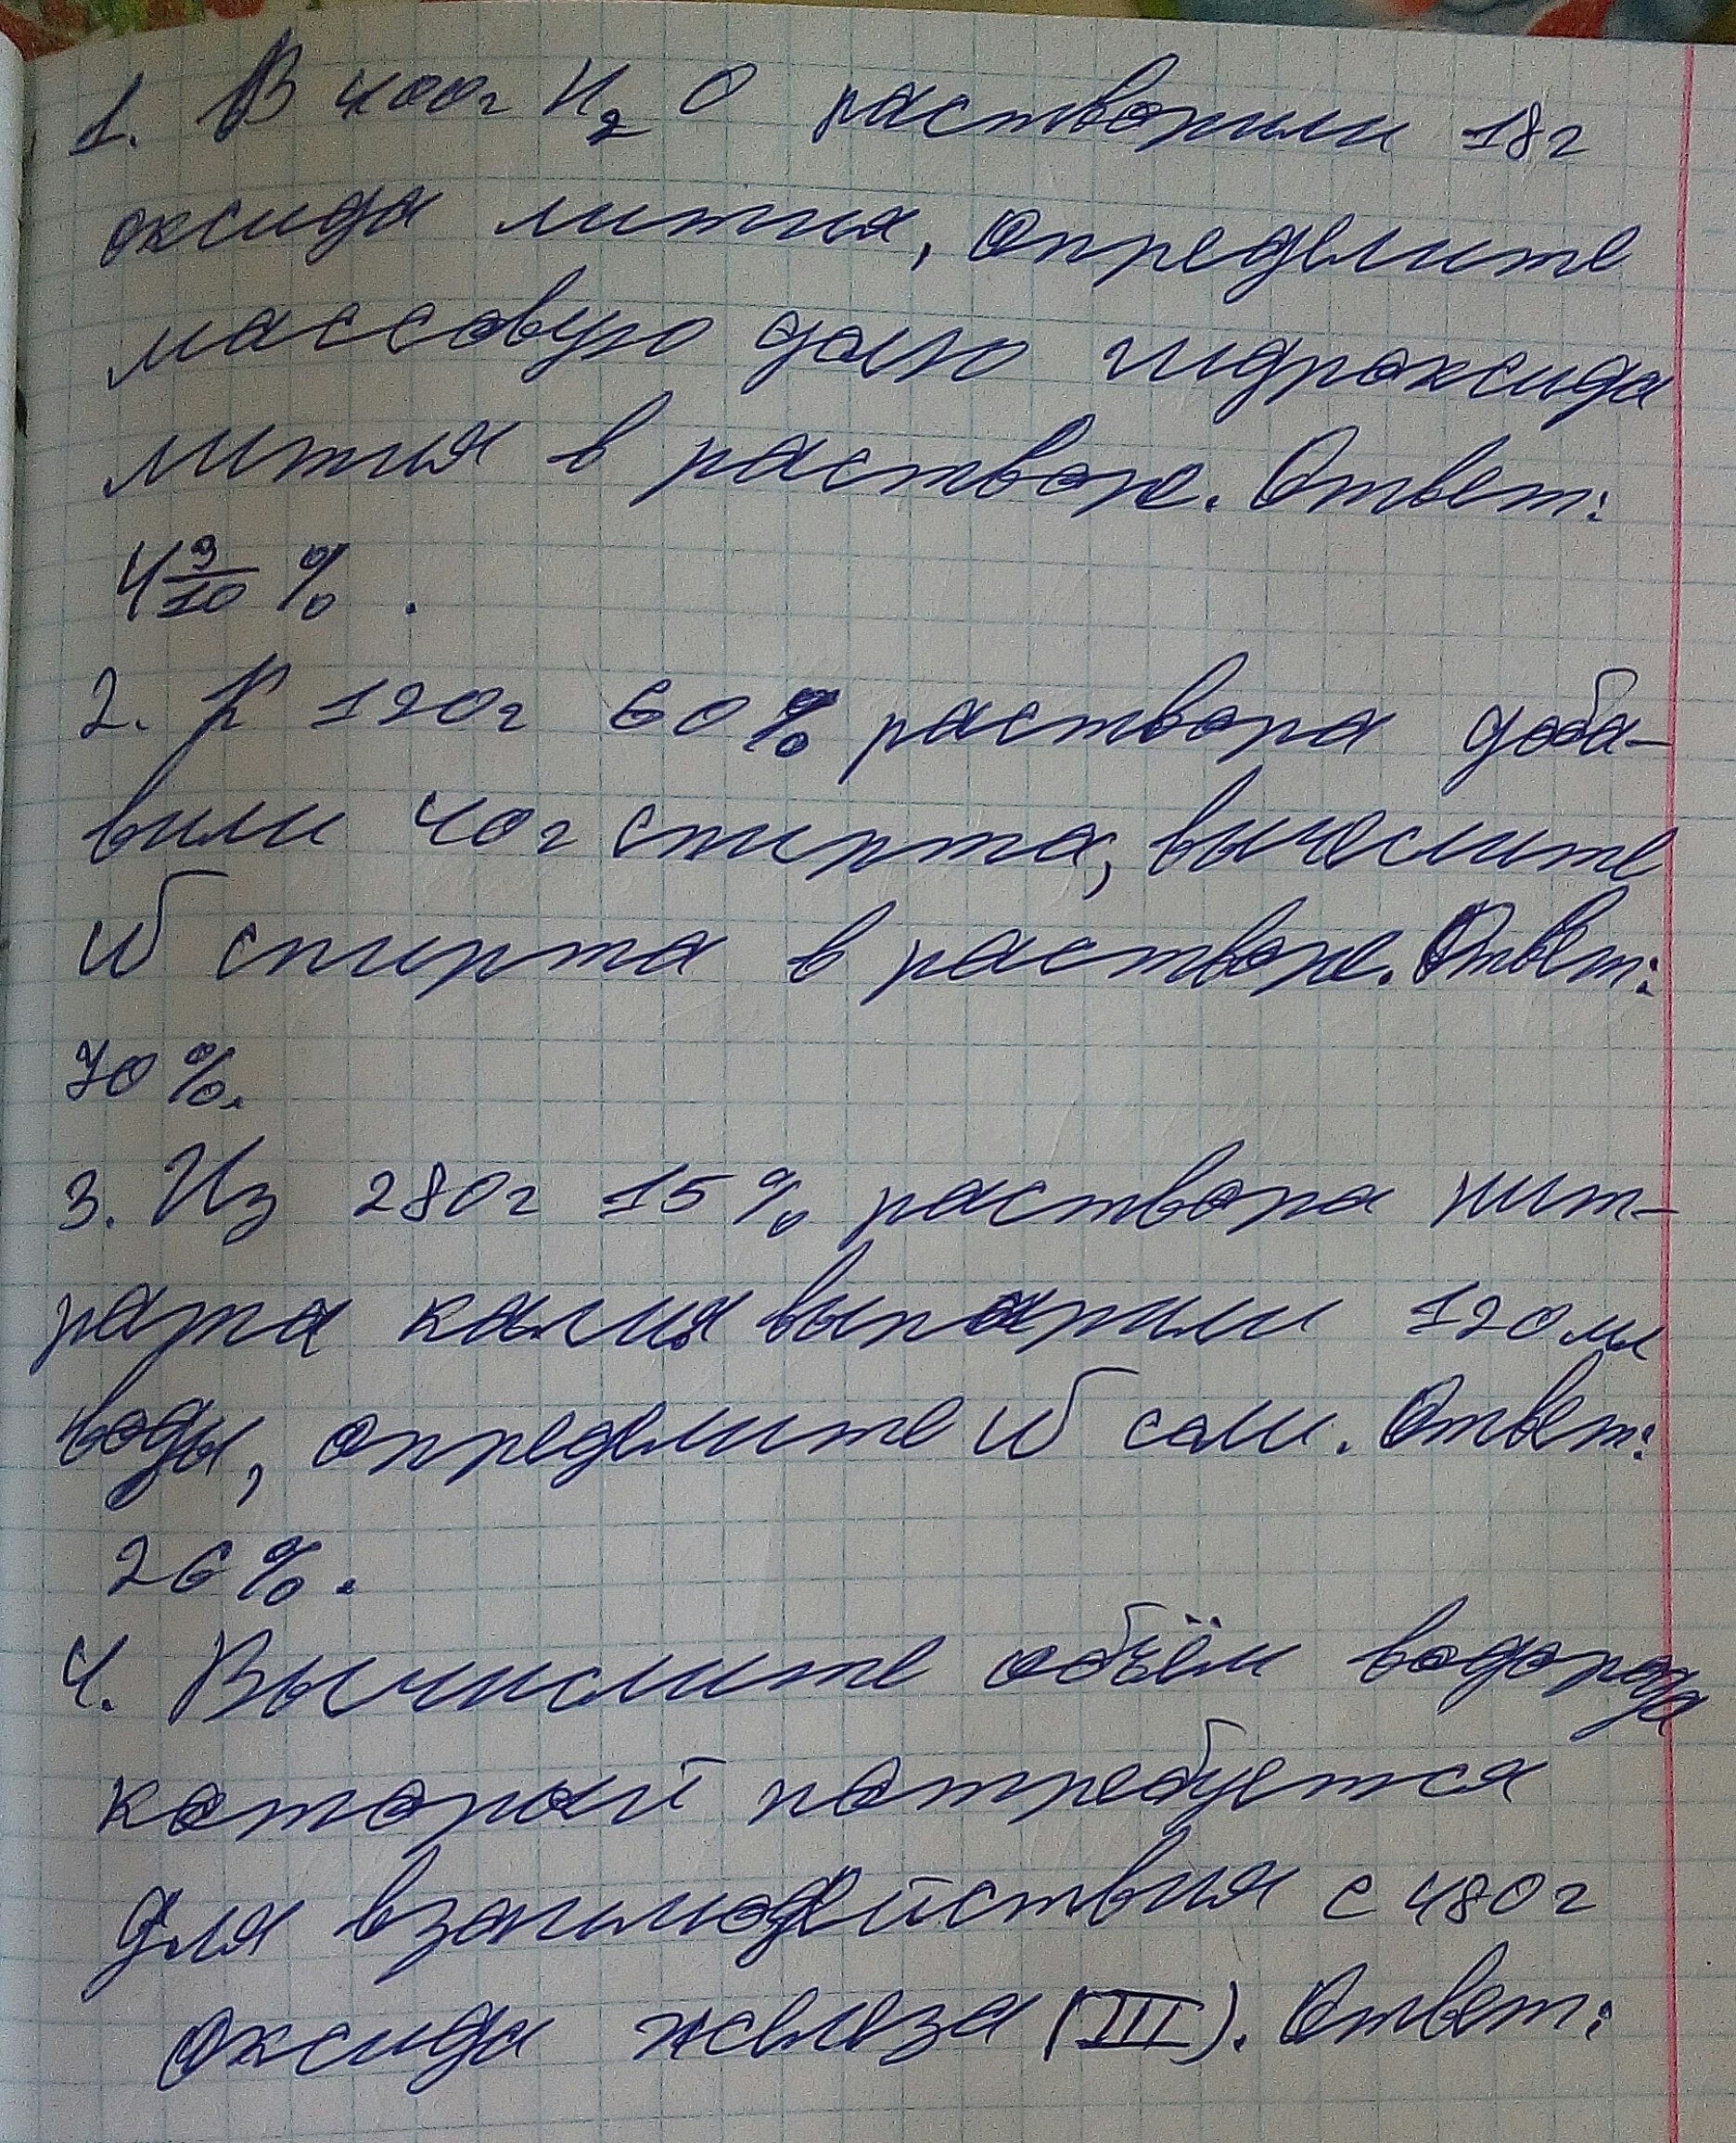 1. В 400г H₂O растворили 18г
оксида лития, определите
массовую долю гидроксида
лития в растворе. Ответ:
4 9/10 %.
2. К 120г 60% раствора доба-
вили 40г спирта, вычеслите
ω спирта в растворе. Ответ:
70%.
3. Из 280г 15% раствора нит-
рата калия выпарили 120мл
воды, определите ω соли. Ответ:
26%.
4. Вычислите объём водорода
который потребуется
для взаимодействия с 480г
оксида железа (III). Ответ: